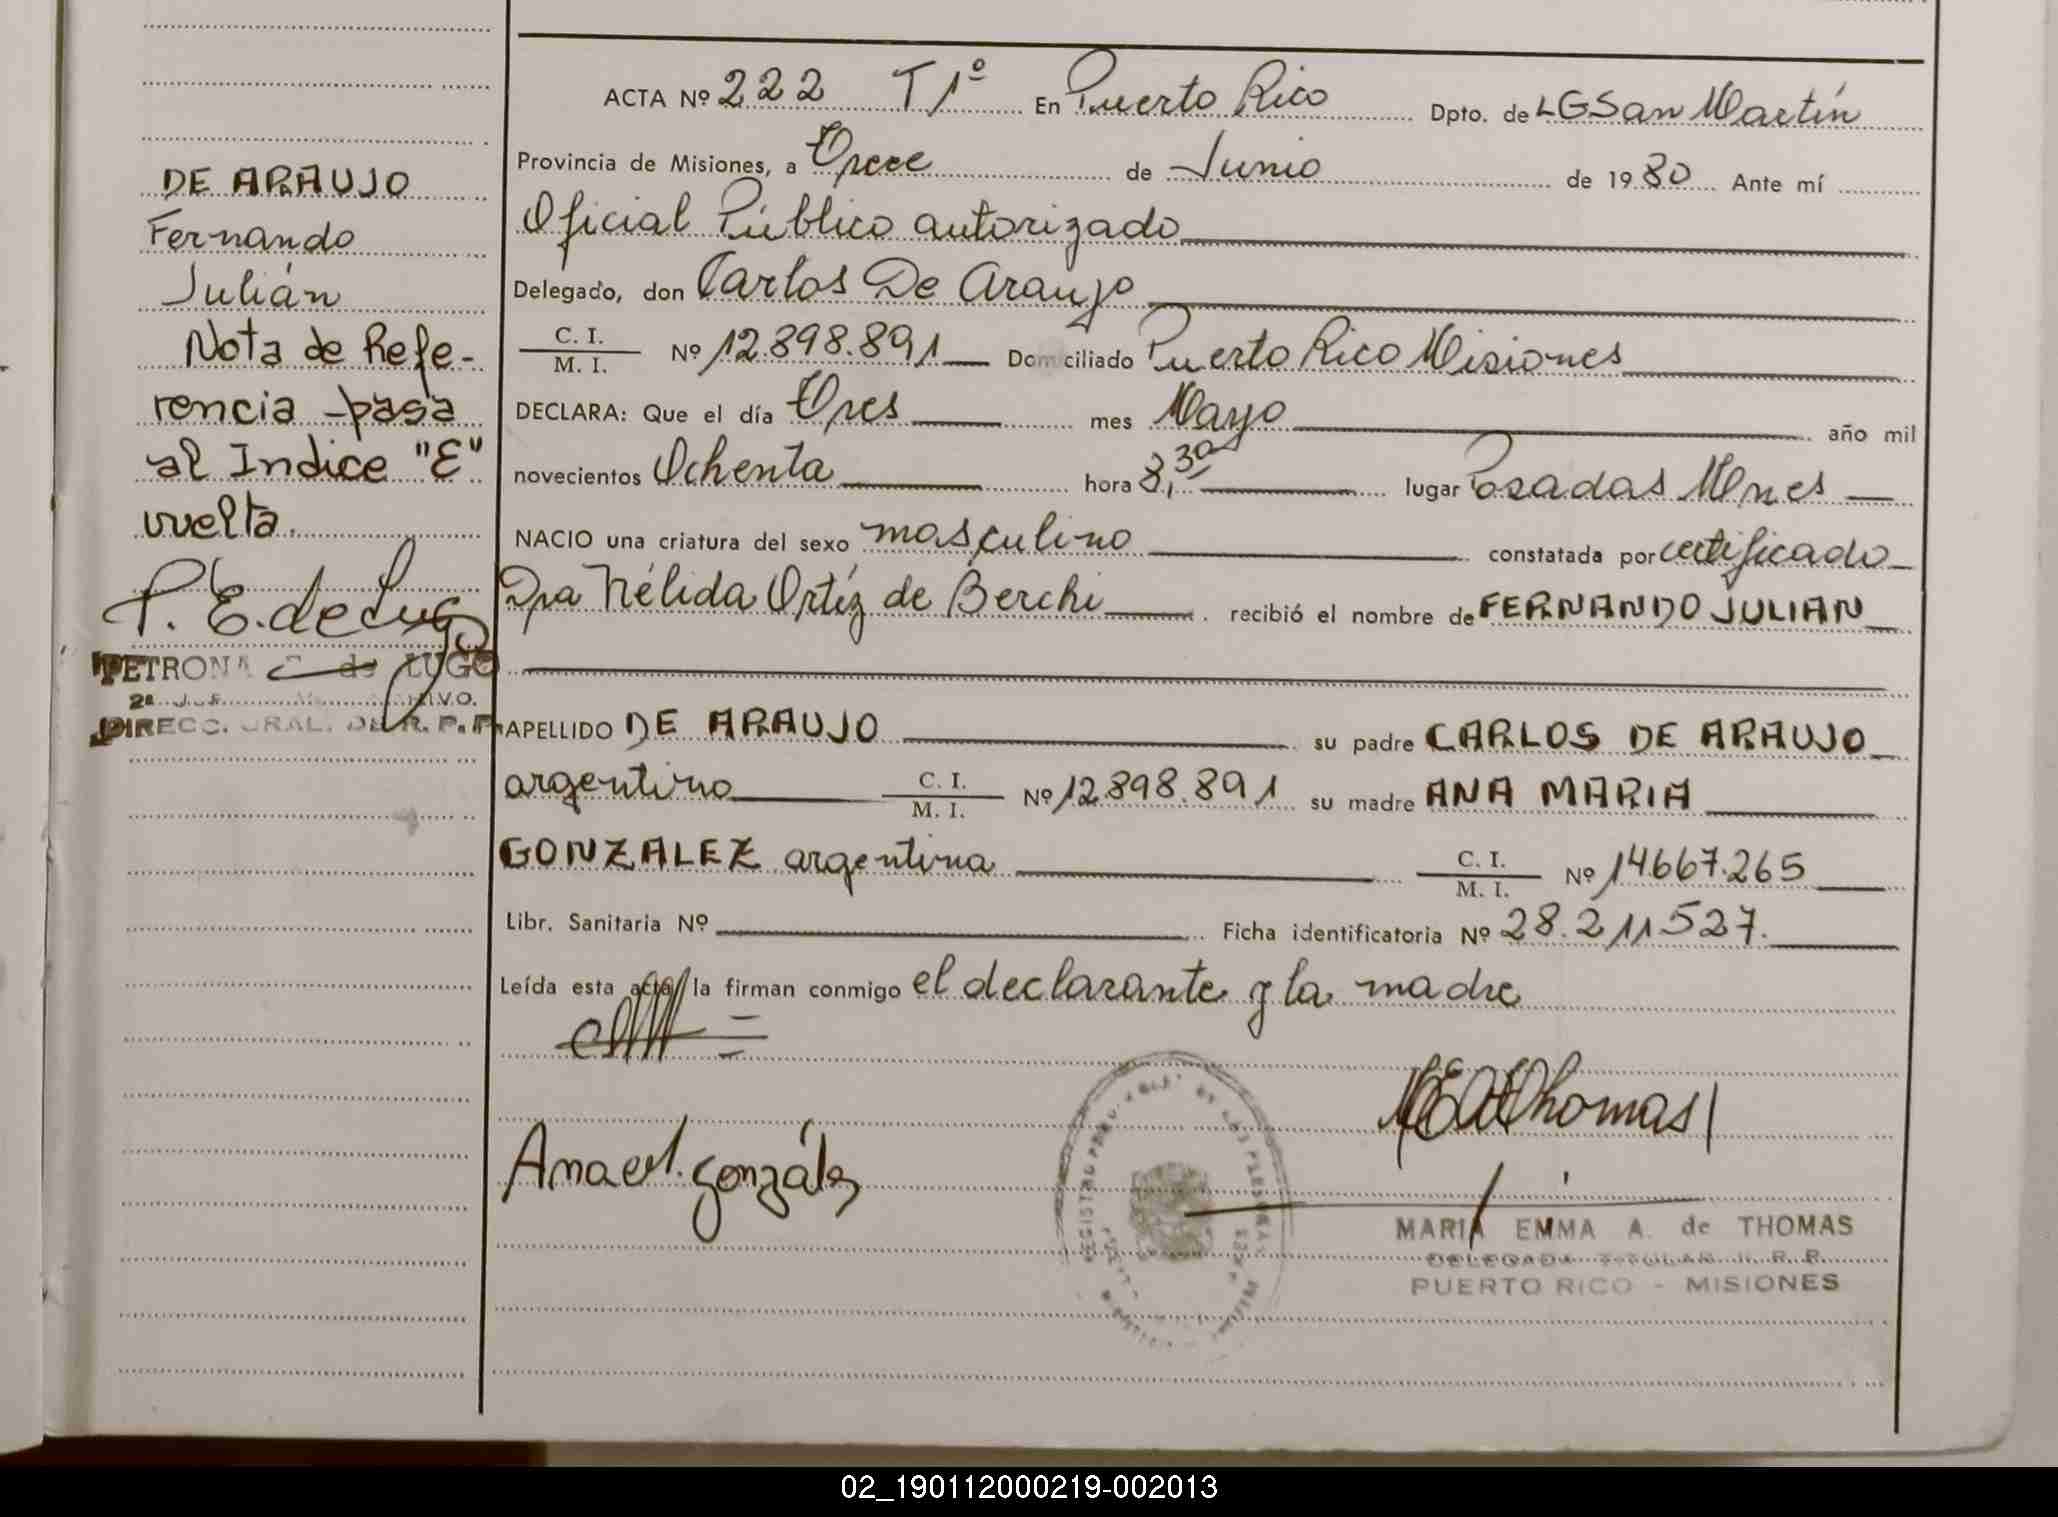 DE ARAUJO
Fernando
Julián
Nota de Refe-
rencia pasa
al Indice "E"
vuelta.
P. E. de Lugo
PETRONA E. de LUGO
DIRECC. GRAL. DE R. P. P.
ACTA Nº 222 T 1º En Puerto Rico Dpto. de LGSan Martín
Provincia de Misiones, a Trece de Junio de 1980 Ante mí
Oficial Público autorizado
Delegado, don Carlos De Araujo
C. I. / M. I. Nº 12.898.891 Domiciliado Puerto Rico Misiones
DECLARA: Que el día Tres mes Mayo año mil
novecientos Ochenta hora 8,30 lugar Posadas Mnes
NACIO una criatura del sexo masculino constatada por certificado
Dra Nélida Ortíz de Berchi recibió el nombre de FERNANDO JULIAN
APELLIDO DE ARAUJO su padre CARLOS DE ARAUJO
argentino C. I. / M. I. Nº 12.898.891 su madre ANA MARIA
GONZALEZ argentina C. I. / M. I. Nº 14.667.265
Libr. Sanitaria Nº Ficha identificatoria Nº 28.211.527.
Leída esta acta la firman conmigo el declarante y la madre
Ana M. González
MARIA EMMA A. de THOMAS
DELEGADA TITULAR R. P.
PUERTO RICO - MISIONES
02_190112000219-002013